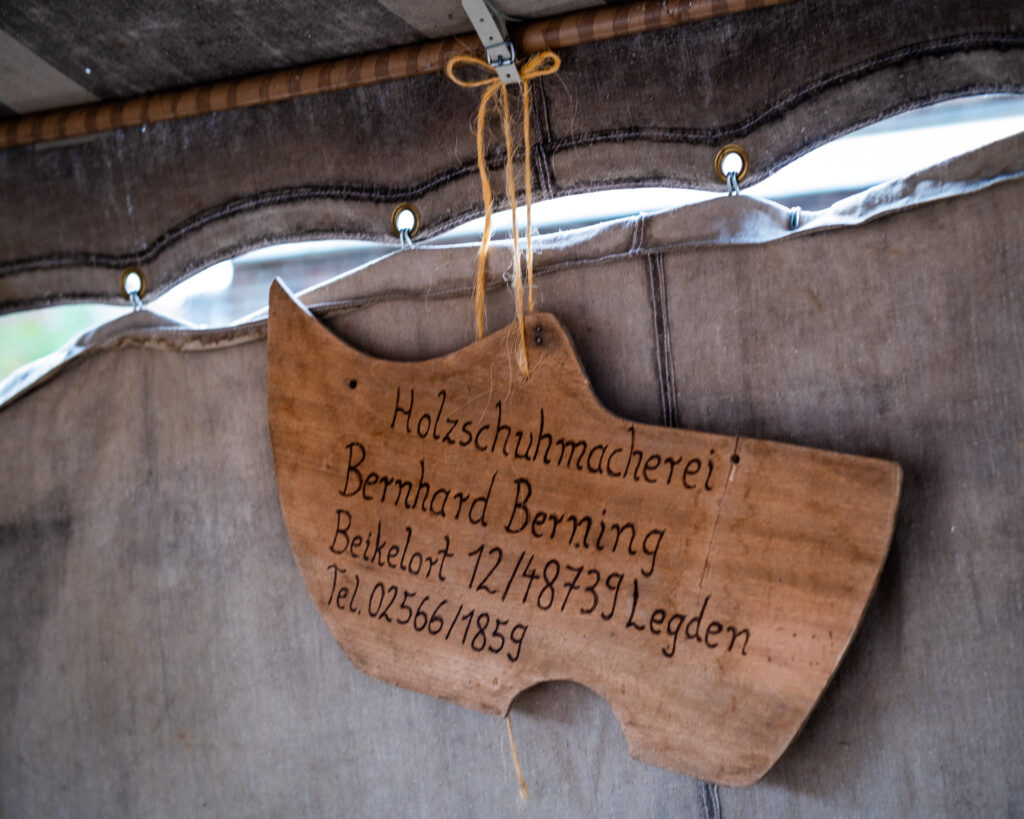 Holzschuhmacherei
Bernhard Berning
Beikelort 12/48739 Legden
Tel. 02566/1859